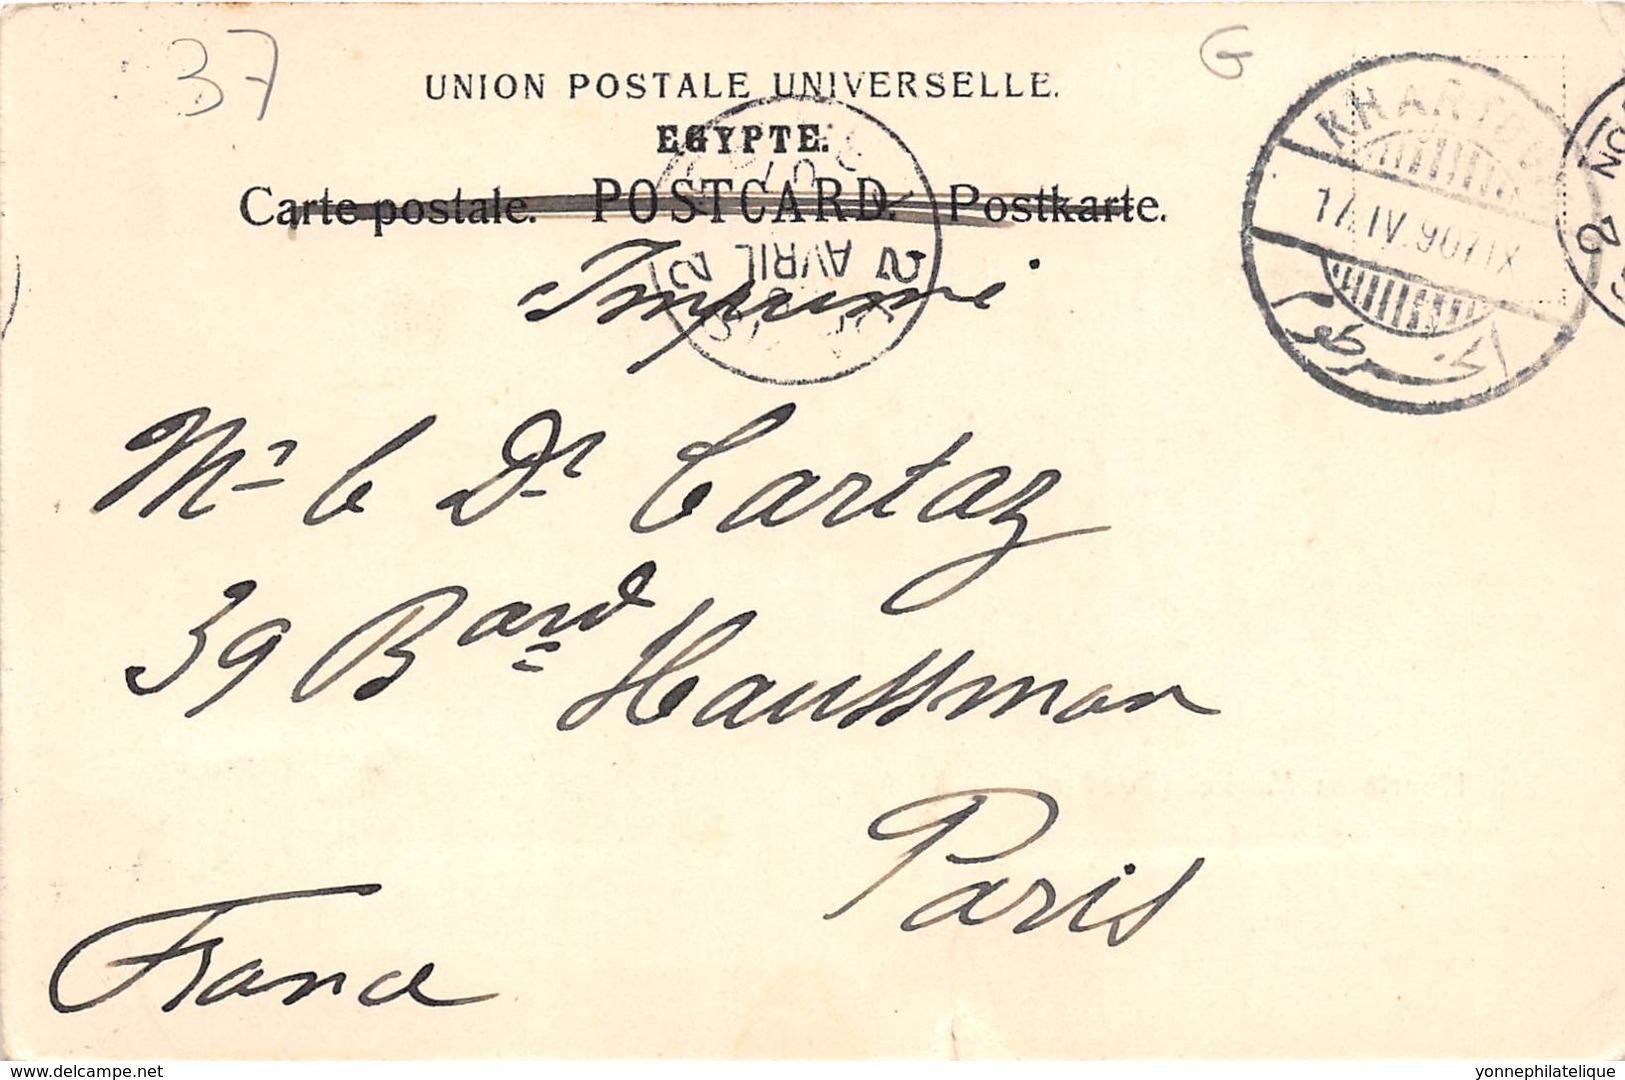 37
G
UNION POSTALE UNIVERSELLE.
EGYPTE.
Carte postale. POSTCARD. Postkarte.
KHARTOU
17.IV.907.IX
الخرطوم
AVRIL
Imprimé
Mr le Dr Cartaz
39 Bard Haussman
Paris
France
www.delcampe.net
yonnephilatelique